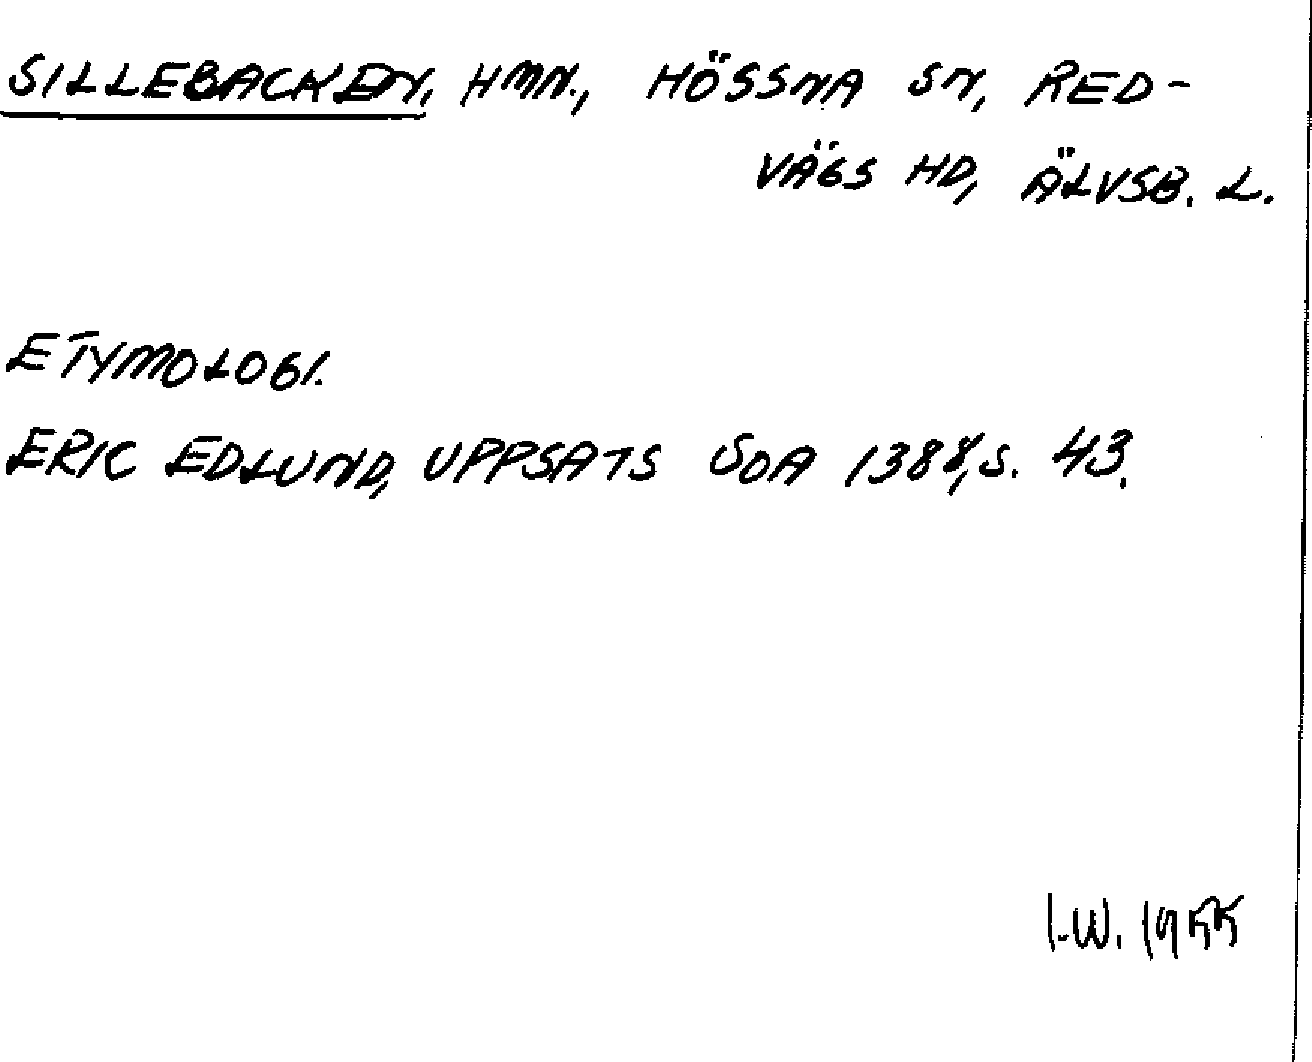 SILLEBACKEN, HMN., HÖSSNA SN, RED-
VÄGS HD, ÄLVSB. L.
ETYMOLOGI.
ERIC EDLUND, UPPSATS SOA 1388, S. 43.
I.W. 1955